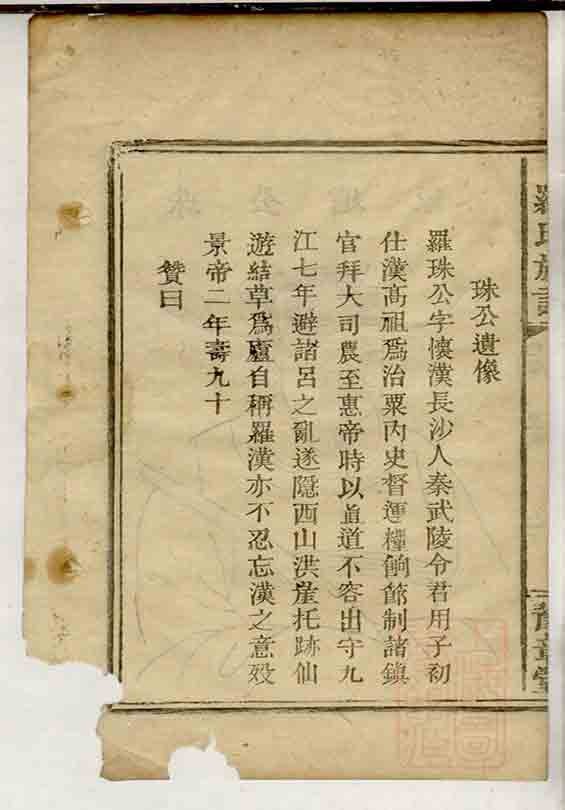 珠公遺像
羅珠公字懷漢長沙人秦武陵令君用子初
仕漢高祖爲治粟內史督運糧餉節制諸鎮
官拜大司農至惠帝時以直道不容出守九
江七年避諸呂之亂遂隱西山洪崖托跡仙
遊結草爲廬自稱羅漢亦不忍忘漢之意殁
景帝二年壽九十
贊曰
羅氏族譜
豫章堂